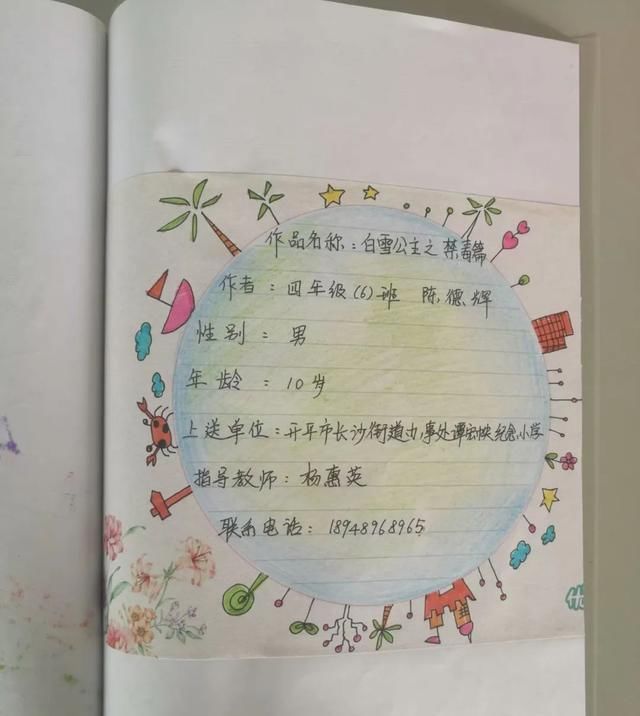 作品名称：白雪公主之禁毒篇
作者：四年级（6）班 陈德辉
性别：男
年龄：10岁
上送单位：开平市长沙街道办事处谭宏帙纪念小学
指导教师：杨惠英
联系电话：18948968965
H